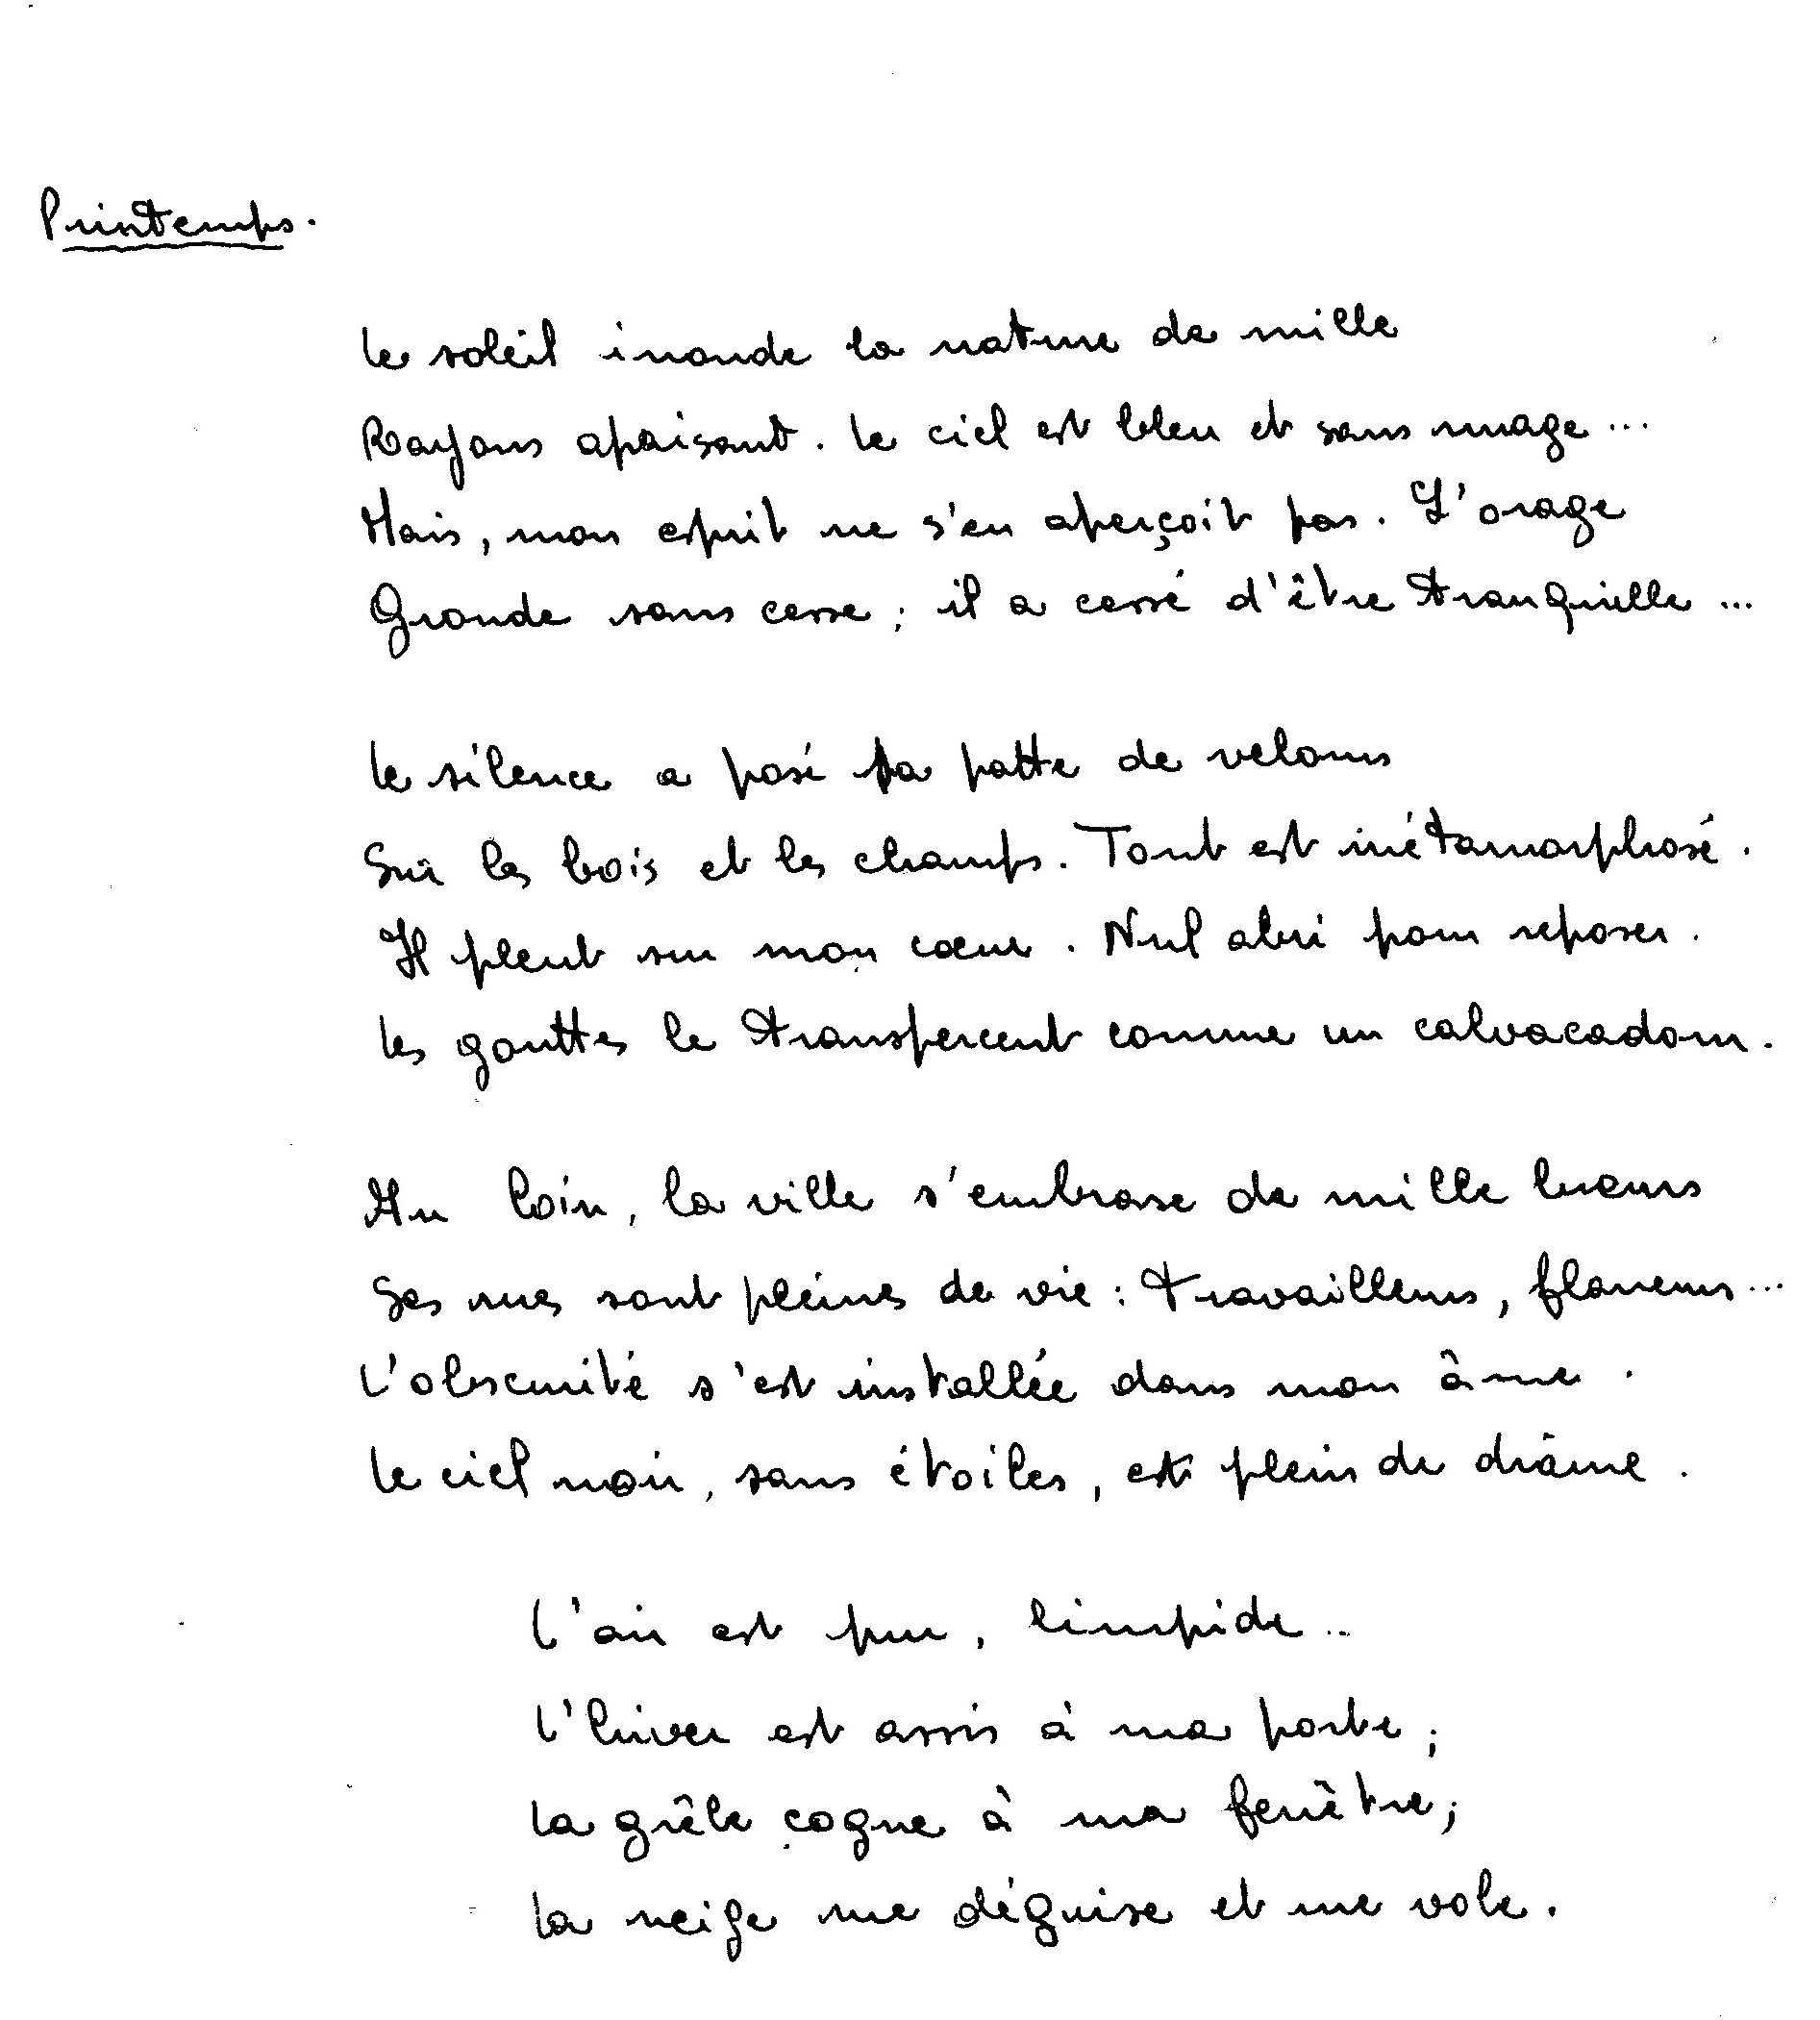 Printemps.
Le soleil inonde la nature de mille
Rayons apaisant. Le ciel est bleu et sans nuage...
Mais, mon esprit ne s'en aperçoit pas. L'orage
Gronde sans cesse ; il a cessé d'être tranquille...
Le silence a posé sa patte de velours
Sur les bois et les champs. Tout est métamorphosé.
Il pleut sur mon cœur. Nul abri pour reposer.
Les gouttes le transpercent comme un calvacadour.
Au loin, la ville s'embrase de mille lueurs
Ses rues sont pleines de vie : travailleurs, flaneurs...
L'obscurité s'est installée dans mon âme.
Le ciel noir, sans étoiles, est plein de drâme.
L'air est pur, limpide..
L'hiver est assis à ma porte ;
La grêle cogne à ma fenêtre ;
La neige me déguise et me vole.